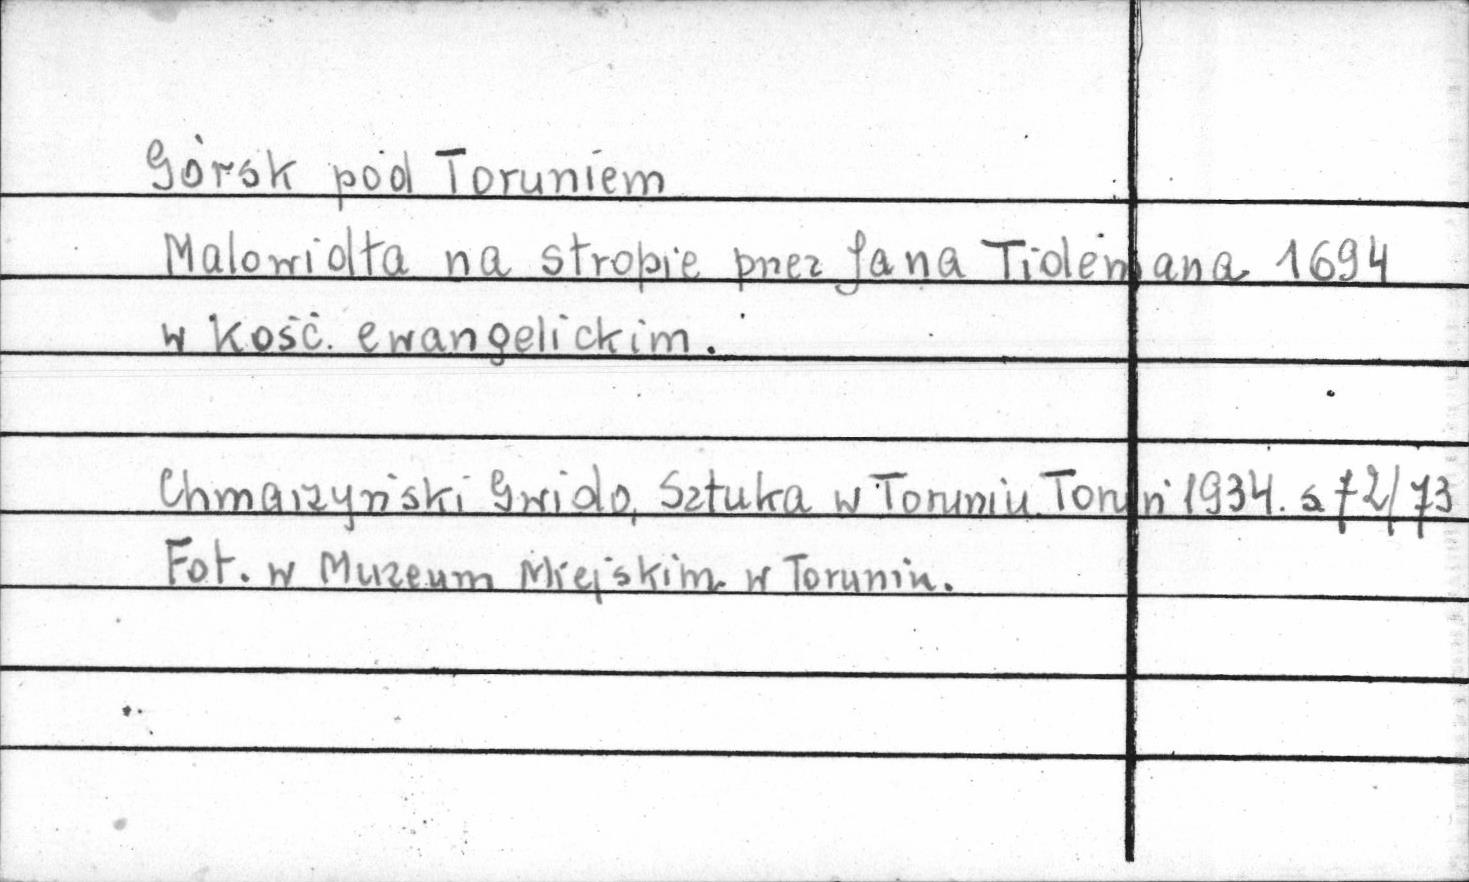 Górsk pod Toruniem
Malowidła na stropie przez Jana Tidemana 1694
w Kość. ewangelickim.
Chmarzyński Gwido, Sztuka w Toruniu. Toruń 1934. s 72/73
Fot. w Muzeum Miejskim w Toruniu.